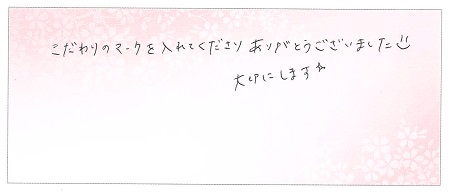 こだわりのマークを入れてくださり ありがとうございました☺
大切にします☆